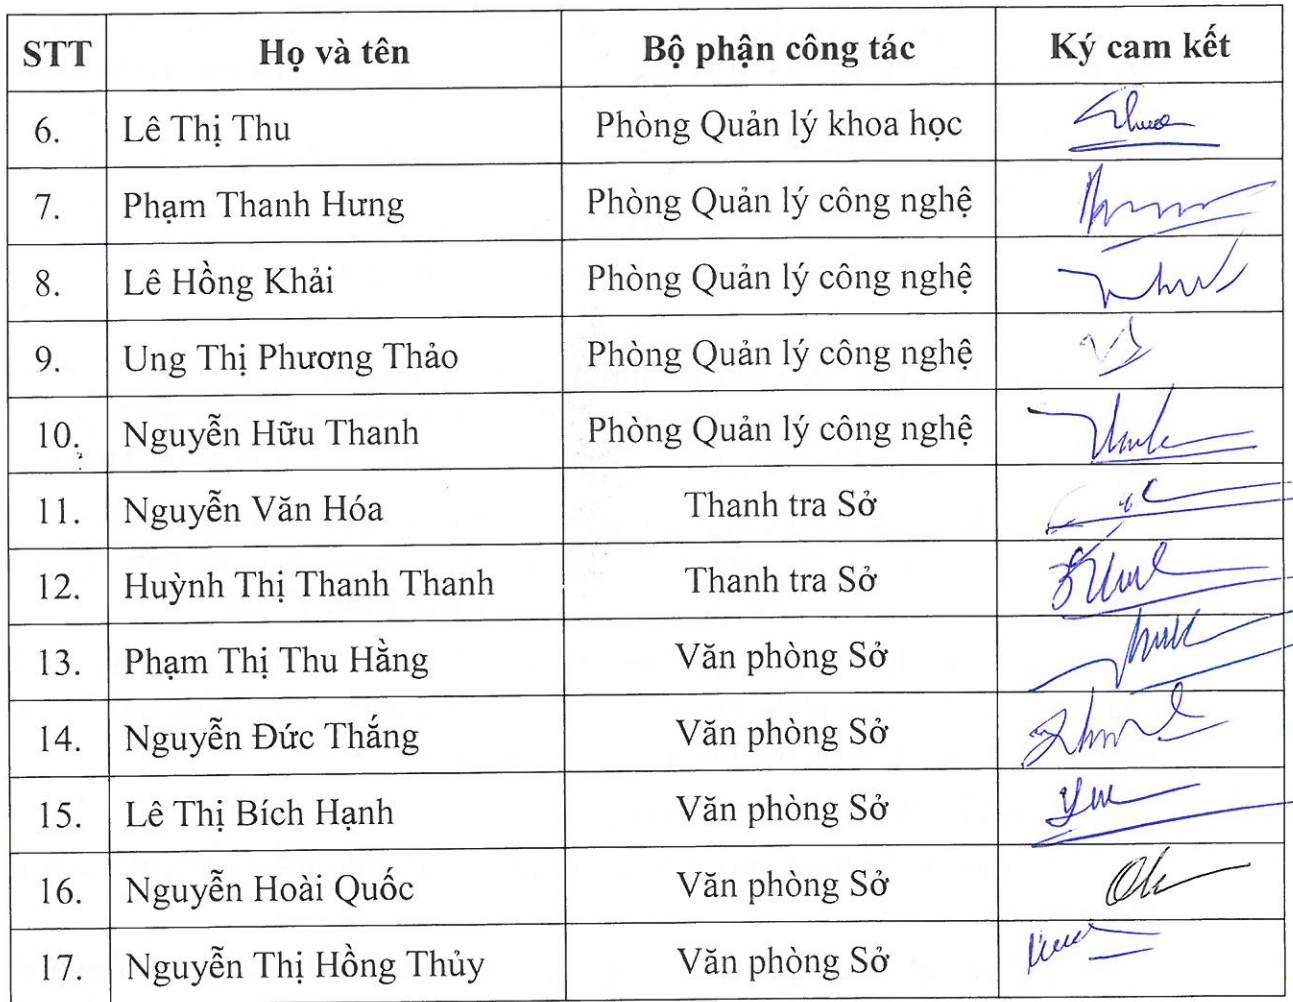 STT Họ và tên Bộ phận công tác Ký cam kết
6. Lê Thị Thu Phòng Quản lý khoa học
7. Phạm Thanh Hưng Phòng Quản lý công nghệ
8. Lê Hồng Khải Phòng Quản lý công nghệ
9. Ung Thị Phương Thảo Phòng Quản lý công nghệ
10. Nguyễn Hữu Thanh Phòng Quản lý công nghệ
11. Nguyễn Văn Hóa Thanh tra Sở
12. Huỳnh Thị Thanh Thanh Thanh tra Sở
13. Phạm Thị Thu Hằng Văn phòng Sở
14. Nguyễn Đức Thắng Văn phòng Sở
15. Lê Thị Bích Hạnh Văn phòng Sở
16. Nguyễn Hoài Quốc Văn phòng Sở
17. Nguyễn Thị Hồng Thủy Văn phòng Sở